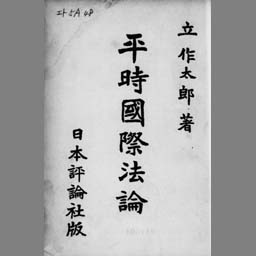 立作太郎著
平時國際法論
日本評論社版